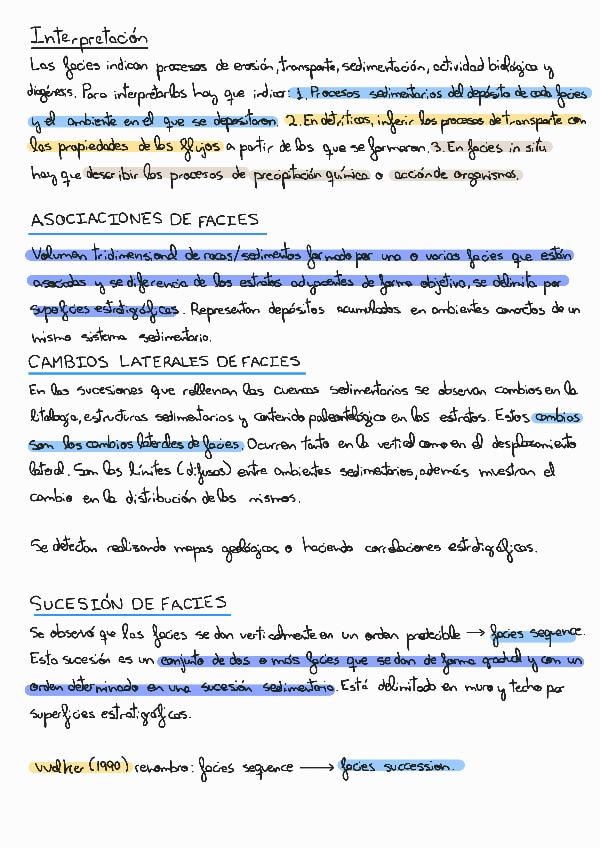 Interpretación
Las facies indican procesos de erosión, transporte, sedimentación, actividad biológica y
diagénesis. Para interpretarlas hay que indicar: 1. Procesos sedimentarios del depósito de cada facies
y el ambiente en el que se depositaron. 2. En detríticas, inferir los procesos de transporte con
las propiedades de los flujos a partir de los que se formaron. 3. En facies in situ
hay que describir los procesos de precipitación química o acción de organismos.
ASOCIACIONES DE FACIES
Volumen tridimensional de rocas/sedimentos formado por una o varias facies que están
asociadas y se diferencia de los estratos adyacentes de forma objetiva, se delimita por
superficies estratigráficas. Representan depósitos acumulados en ambientes concretos de un
mismo sistema sedimentario.
CAMBIOS LATERALES DE FACIES
En las sucesiones que rellenan las cuencas sedimentarias se observan cambios en la
litología, estructuras sedimentarias y contenido paleontológico en los estratos. Estos cambios
son los cambios laterales de facies. Ocurren tanto en la vertical como en el desplazamiento
lateral. Son los límites (difusos) entre ambientes sedimentarios, además muestran el
cambio en la distribución de los mismos.
Se detectan realizando mapas geológicos o haciendo correlaciones estratigráficas.
SUCESIÓN DE FACIES
Se observó que las facies se dan verticalmente en un orden predecible → facies sequence.
Esta sucesión es un conjunto de dos o más facies que se dan de forma gradual y con un
orden determinado en una sucesión sedimentaria. Está delimitado en muro y techo por
superficies estratigráficas.
Walker (1990) renombra: facies sequence → facies succession.